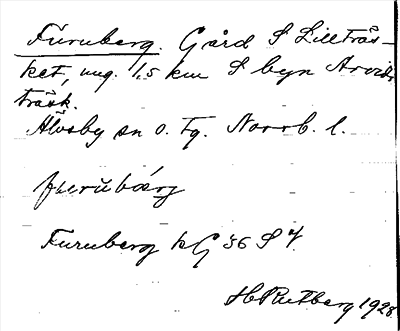 Furuberg. Gård S Lillträs-
ket, ung. 1,5 km S byn Arvids-
träsk.
Älvsby sn o. Tg. Norrb. l.
Furuberg kG 36 S V
H Rutberg 1928